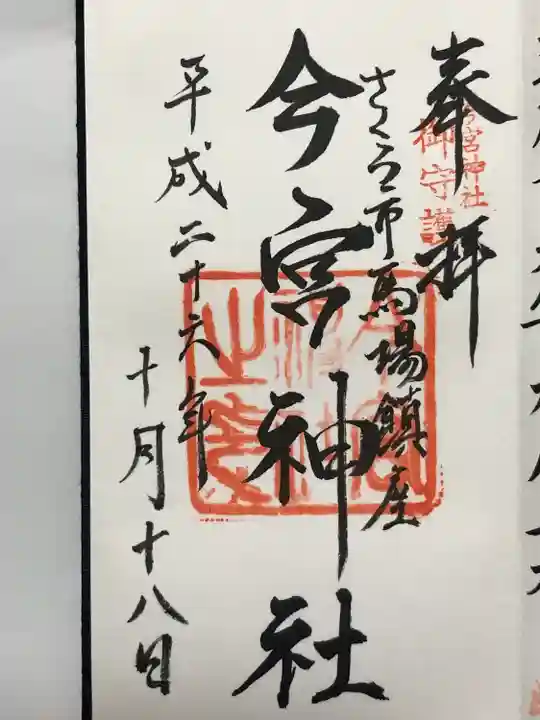 奉拝
今宮神社
御守護
さくら市馬場鎮座
今宮神社
平成二十六年
十月十八日